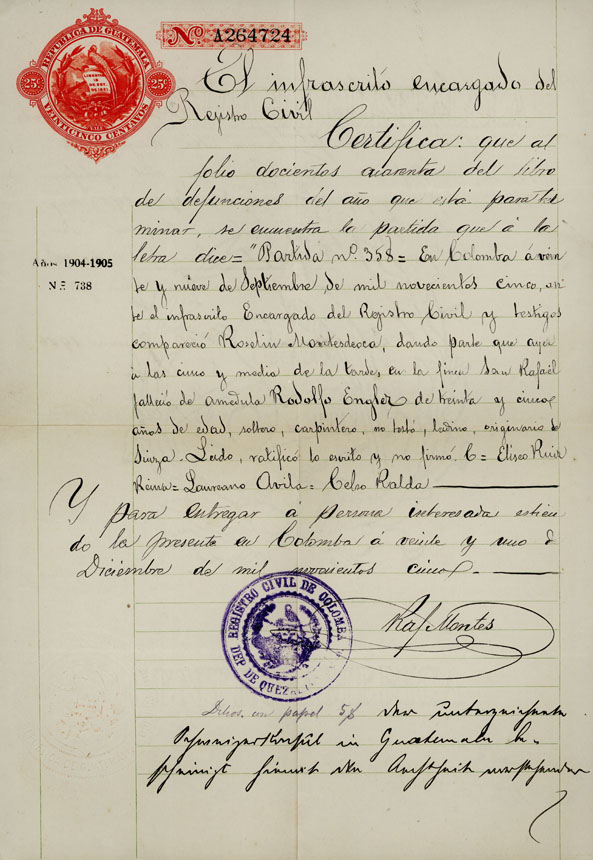 REPUBLICA DE GUATEMALA
LIBERTAD
15
DE SET.
DE 1821
25c 25c
VEINTICINCO CENTAVOS
No. A264724
El infrascrito encargado del
Registro Civil
Certifica: que al
folio docientos cuarenta del libro
de defunciones del año que está para ter
minar, se encuentra la partida que á la
letra dice = "Partida nº. 358 = En Colomba á vein
te y nueve de Septiembre de mil novecientos cinco, an
te el infrascrito Encargado del Registro Civil y testigos
compareció Roselin Montesdeoca, dando parte que ayer
á las cinco y media de la tarde, en la finca San Rafael
falleció de Rodolfo Engler de treinta y cinco
años de edad, soltero, carpintero, no testó, ladino, originario de
Suiza. Leido, ratificó lo escrito y no firmó. C = Eliseo Ruiz
Reina = Laureano Avila = Celso Ralda
Y para entregar á persona interesada estien
do la presente en Colomba á veinte y uno de
Diciembre de mil novecientos cinco.
Años 1904-1905
Nº 738
REGISTRO CIVIL DE COLOMBA
DEP DE QUEZAL
Raf Montes
papel Der unterzeichnete
Schweizerkonsul in Guatemala be-
scheinigt hiemit die Aechtheit vorstehender